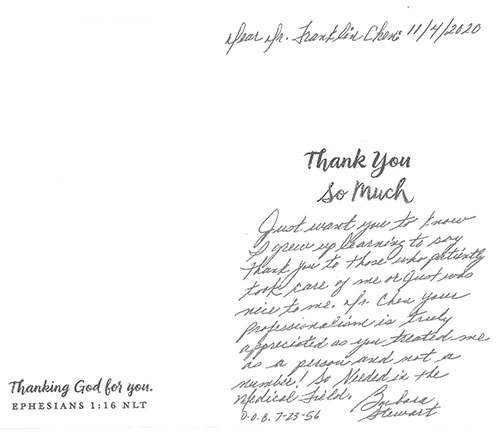 Dear Dr. Franklin Chen: 11/4/2020
Thank You
So Much
Just want you to know
I grew up learning to say
thank you to those who patiently
took care of me or Just was
nice to me. Dr. Chen your
Professionalism is truly
appreciated as you treated me
as a person and not a
number! So Needed in the
Medical Field. Barbara
D.O.B. 7-23-56 Stewart
Thanking God for you.
EPHESIANS 1:16 NLT